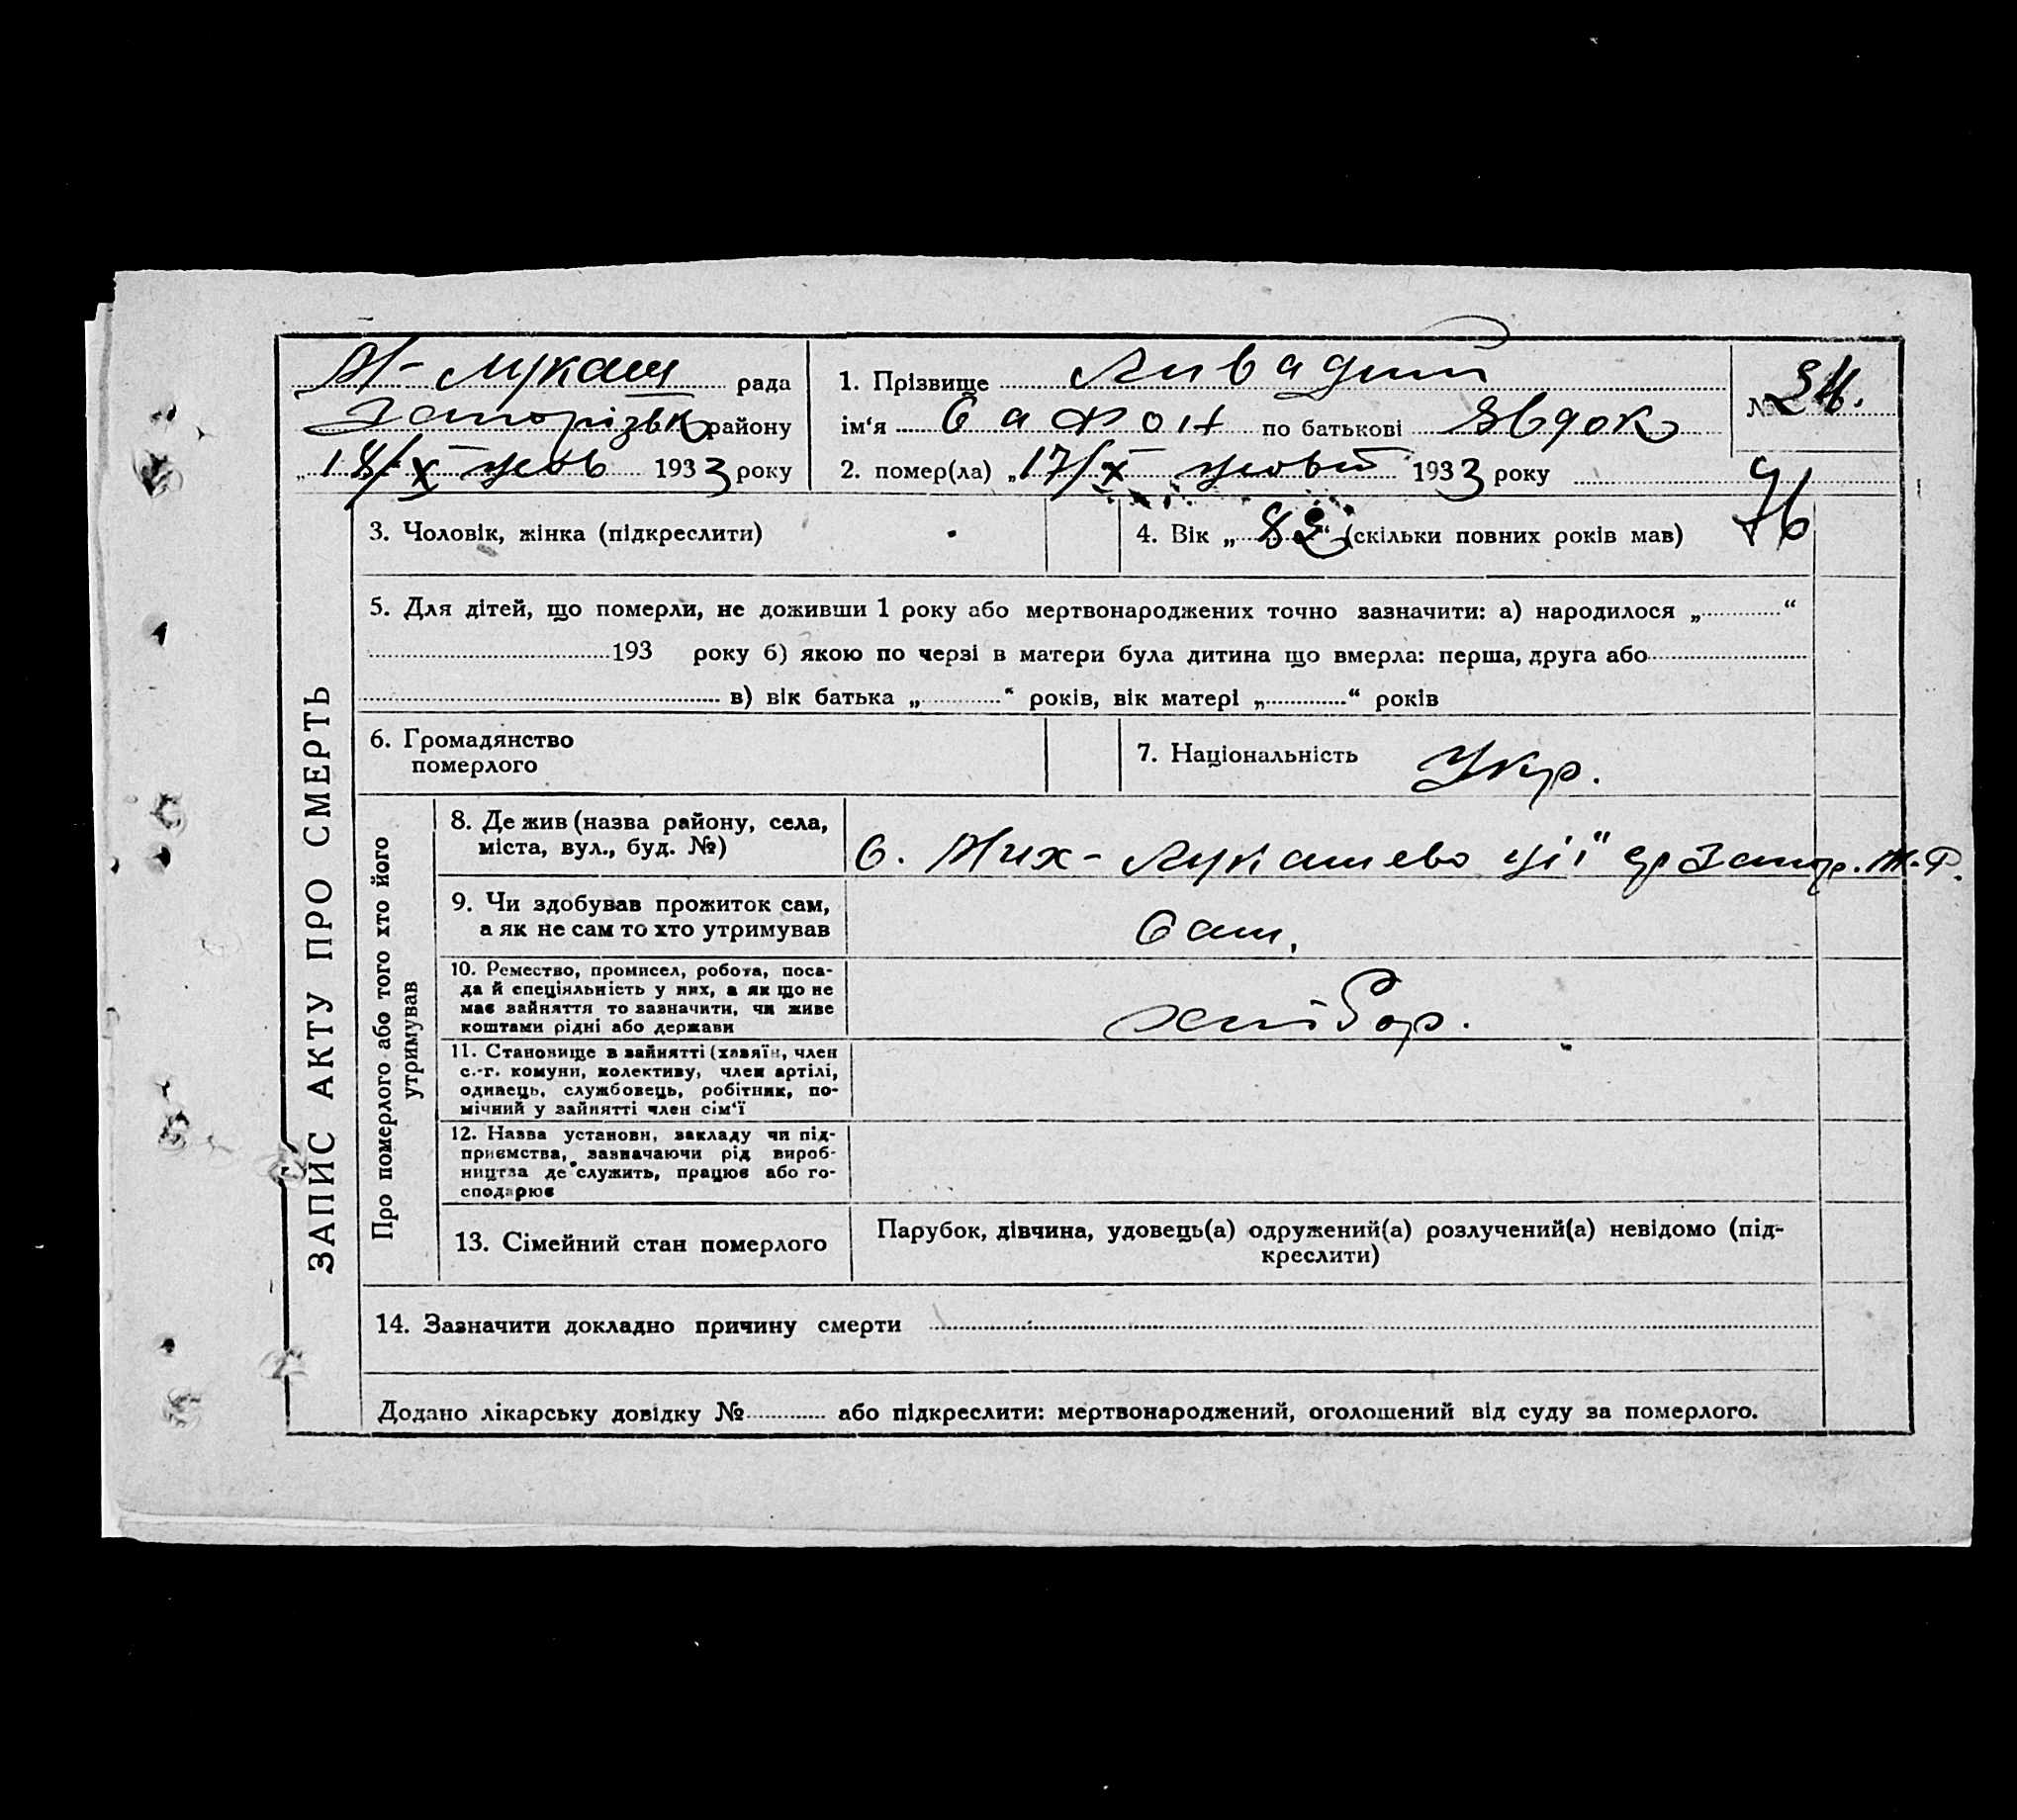 М-Лукаш рада
Запорізьк району
„18/X 1933 року
1. Прізвище Ливадний
ім‘я Сафон по батькові Явдок
2. помер(ла) „17/X 1933 року
№ 24.
96
ЗАПИС АКТУ ПРО СМЕРТЬ
3. Чоловік, жінка (підкреслити)
4. Вік „82“ (скільки повних років мав)
5. Для дітей, що померли, не доживши 1 року або мертвонароджених точно зазначити: а) народилося „............“
193 року б) якою по черзі в матери була дитина що вмерла: перша, друга або
в) вік батька „............“ років, вік матері „............“ років
6. Громадянство
померлого
7. Національність Укр.
Про померлого або того хто його
утримував
8. Де жив (назва району, села,
міста, вул., буд. №)
с. Мих-Лукашево Запор.
9. Чи здобував прожиток сам,
а як не сам то хто утримував
Сам.
10. Ремество, промисел, робота, поса-
да й спеціяльність у них, а як що не
має зайняття то зазначити, чи живе
коштами рідні або держави
хлібор.
11. Становище в зайнятті (хазяїн, член
с.-г. комуни, колективу, член артілі,
одинець, службовець, робітник, по-
мічний у зайнятті член сім‘ї
12. Назва установи, закладу чи під-
приємства, зазначаючи рід вироб-
ництва де служить, працює або го-
сподарює
13. Сімейний стан померлого
Парубок, дівчина, удовець(а) одружений(а) розлучений(а) невідомо (під-
креслити)
14. Зазначити докладно причину смерти
Додано лікарську довідку №............ або підкреслити: мертвонароджений, оголошений від суду за померлого.